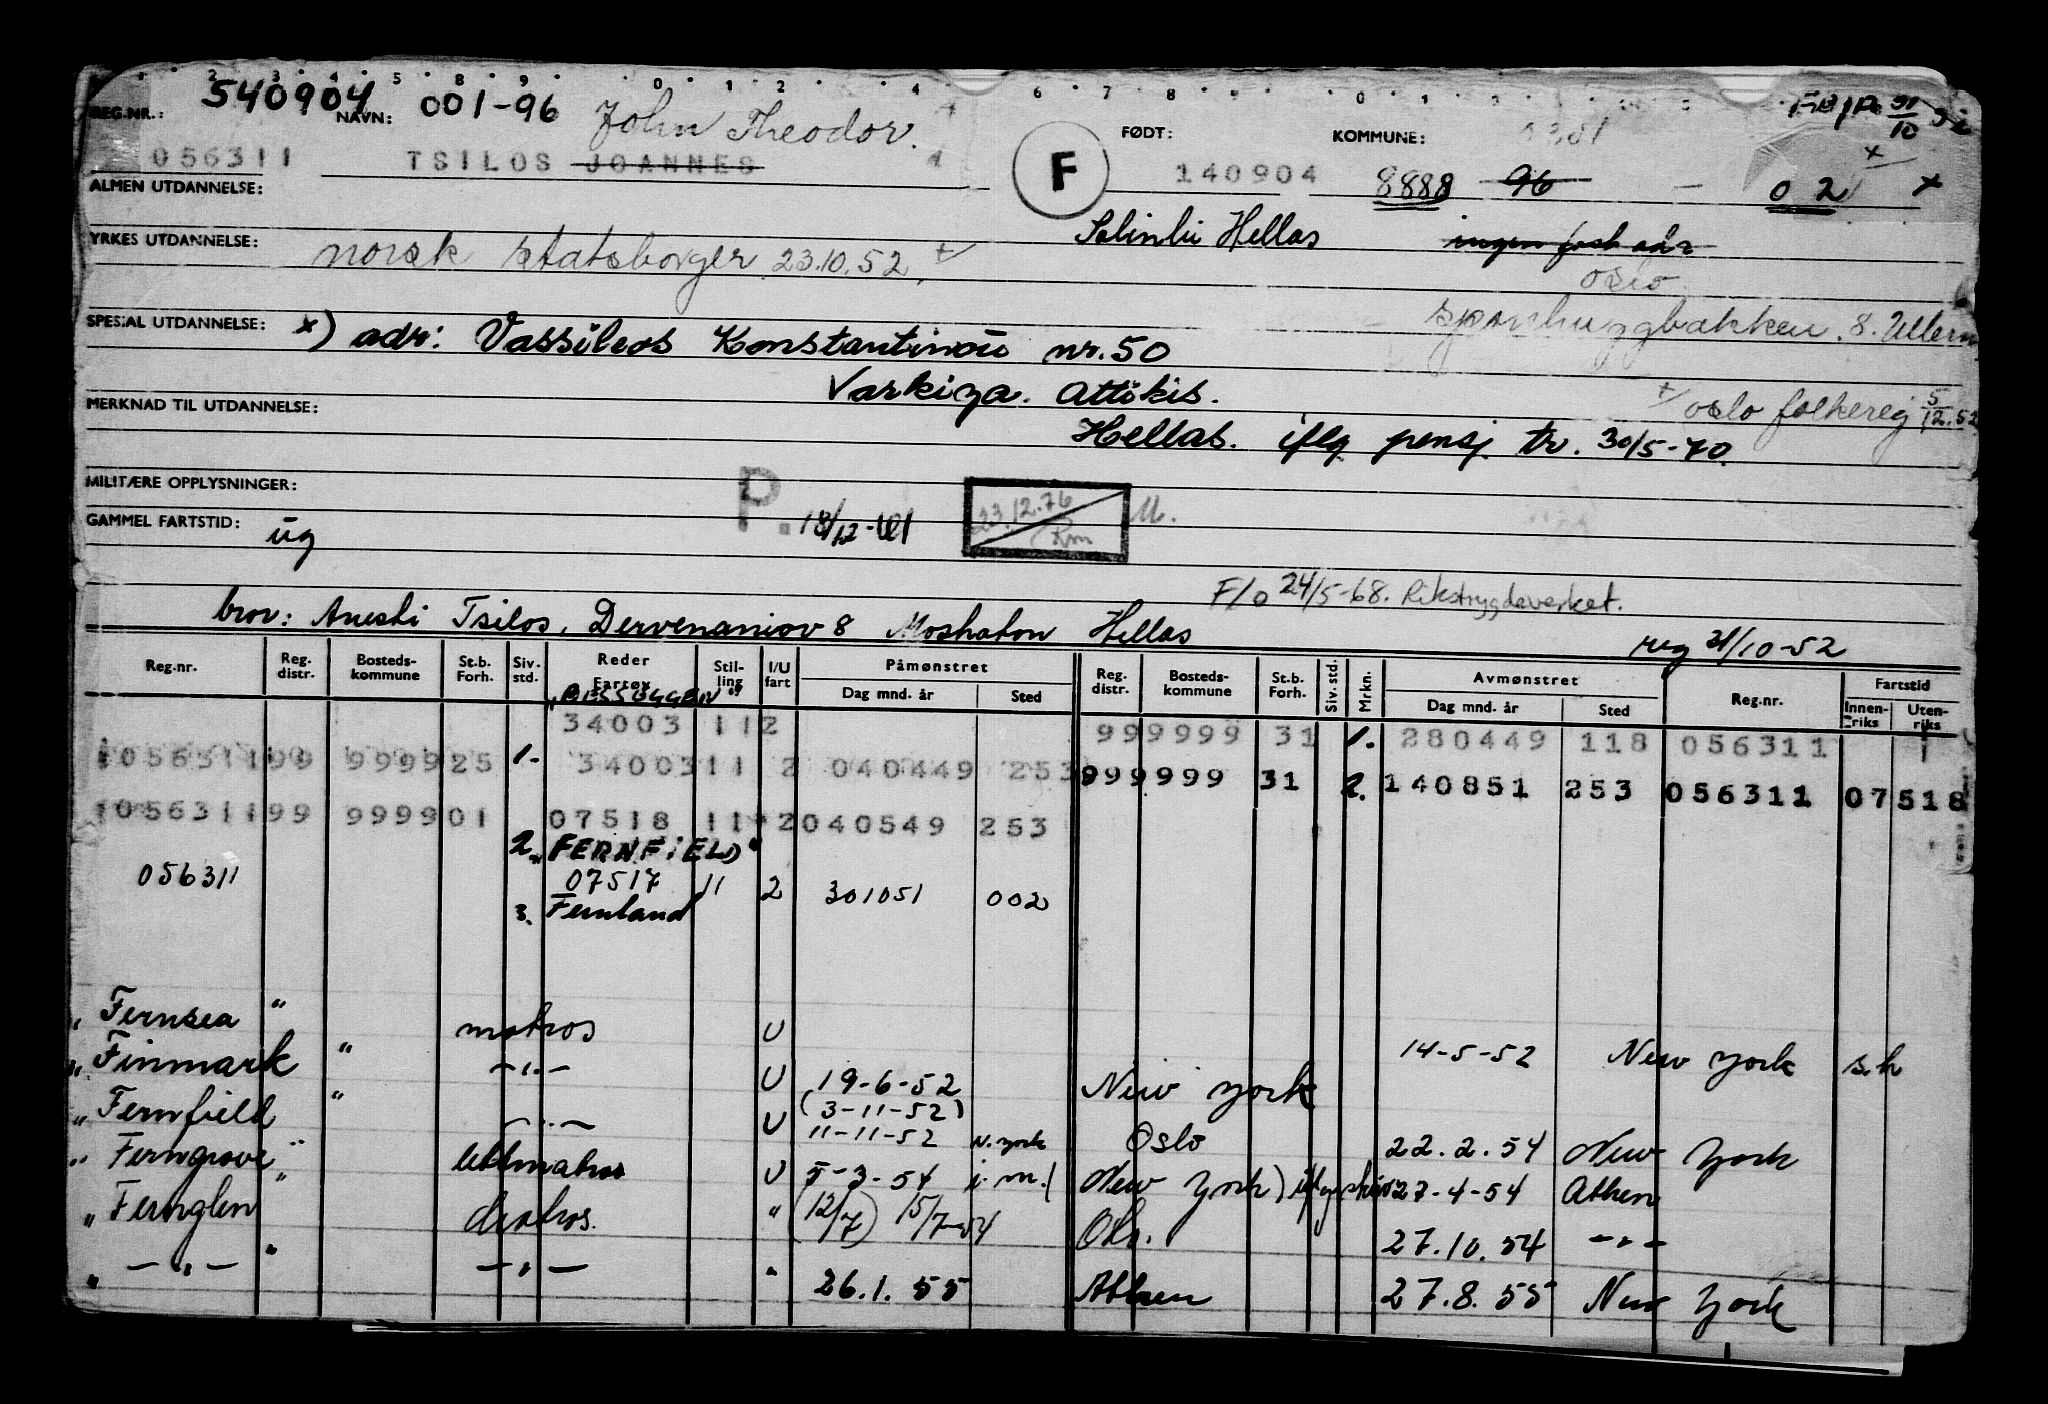 2 3 4 5 8 9 0 1 2 4 6 7 8 9 0 1 2
REG.NR.: 540904 NAVN: 001-96 John Theodor. FØDT: KOMMUNE: 0301
056311 TSILOS JOANNES F 140904 8888 96 — 02 x
ALMEN UTDANNELSE:
Hellas ingen fast adr
YRKES UTDANNELSE: norsk statsborger 23.10.52 +/
oslo
SPESIAL UTDANNELSE: x) adr: Vassileos Konstantinou nr. 50
8. Ullern
Varkiza. Attikis. +/ oslo folkereg 5/12.52
MERKNAD TIL UTDANNELSE:
Hellas. iflg pensj tr. 30/5-70.
MILITÆRE OPPLYSNINGER: P. 23.12.76 M.
GAMMEL FARTSTID: ug
F/o 24/5-68. Rikstrygdeverket.
bror: Anesti Tsilos, 8 Moshaton Hellas reg 31/10-52
Reg.nr. Reg. distr. Bosteds- kommune St.b. Forh. Siv. std. Reder Fartøy Stil- ling I/U fart Påmønstret Dag mnd. år Sted Reg. distr. Bosteds- kommune St.b. Forh. Siv. std. Mrkn. Avmønstret Dag mnd. år Sted Reg.nr. Fartstid Innen- riks Uten- riks
"BESSEGGEN"
34003 112 999999 31 1. 280449 118 056311
1056311 99 999925 1. 34003 11 2 040449 253 999999 31 2. 140851 253 056311 07518
1056311 99 999901 07518 11 2 040549 253
2. "FERNFIELD"
056311 07517 11 2 301051 002
3. Fernland
" Fernsea " matros U 14-5-52 New York s.h
" Finmark " -"- U 19-6-52 New York
" Fernfield " -"- U (3-11-52) 11-11-52 N. York Oslo 22.2.54 New York
" Ferngrove " lettmatros U 5-3-54 i.m. (New York) 27-4-54 Athen
" Fernglen " matros. " (12/7) 15/7-54 27.10.54 -"-
" -"- " -"- " 26.1.55 Athen 27.8.55 New York